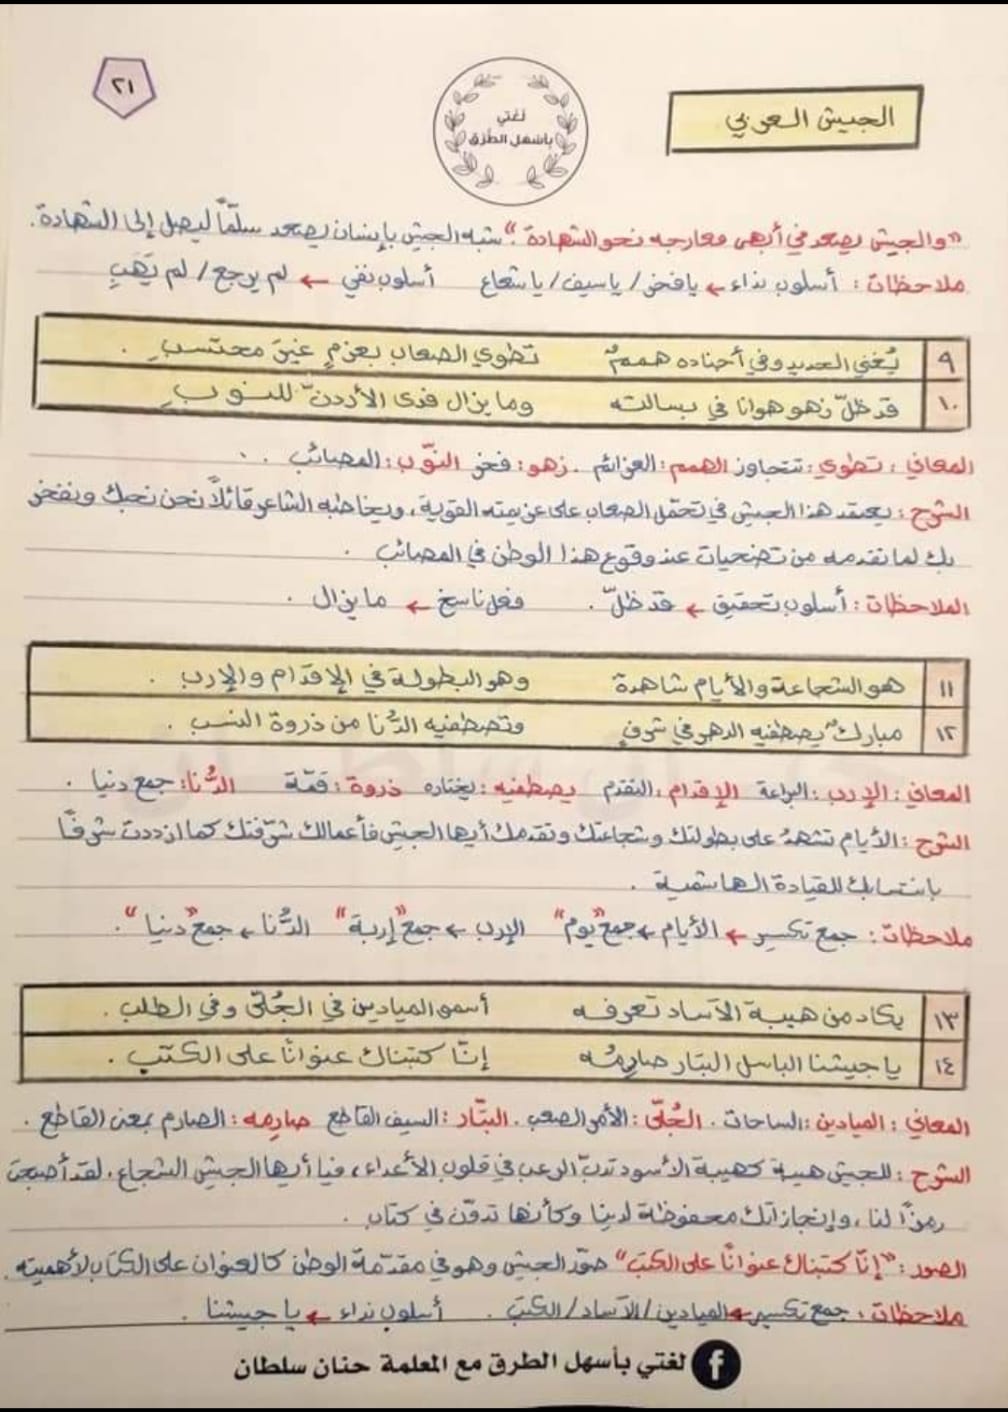 ٢١
لغتي
بأسهل الطرق
الجيش العربي
"والجيش يصعد في أبهى معارجه نحو الشهادة": شبه الجيش بإنسان يصعد سلّماً ليصل إلى الشهادة.
ملاحظات: أسلوب نداء ← يا فخر / يا سيف / يا شعاع أسلوب نفي ← لم يرجع / لم يَهَبِ
٩ يُغني الحديد وفي أجناده هممٌ تطوي الصعاب بعزمٍ غير محتسبِ.
١٠ قد ظلّ زهو هوانا في بسالته وما يزال فدى الأردنّ للنوبِ
المعاني: تطوي: تتجاوز الهمم: العزائم. زهو: فخر النوّب: المصائب
الشرح: يعتمد هذا الجيش في تحمّل الصعاب على عزيمته القوية، ويخاطبه الشاعر قائلاً نحن نحبك ونفخر
بك لما تقدمه من تضحيات عند وقوع هذا الوطن في المصائب.
الملاحظات: أسلوب تحقيق ← قد ظلّ. فعل ناسخ ← ما يزال.
١١ هو الشجاعة والأيام شاهدة وهو البطولة في الإقدام والإرب.
١٢ مباركٌ يصطفيه الدهر في شرفٍ وتصطفيه الدُّنا من ذروة النسب.
المعاني: الإرب: البراعة الإقدام: التقدم يصطفيه: يختاره ذروة: قمّة الدُّنا: جمع دنيا.
الشرح: الأيام تشهدُ على بطولتك وشجاعتك وتقدمك أيها الجيش فأعمالك شرّفتك كما ازددت شرفًا
بانتسابك للقيادة الهاشمية.
ملاحظات: جمع تكسير ← الأيام ← جمع "يوم" الإرب ← جمع "إربة" الدُّنا ← جمع "دنيا".
١٣ يكاد من هيبة الآساد تعرفه أسمو الميادين في الجُلّى وفي الطلب.
١٤ يا جيشنا الباسل البتار صارمُه إنّا كتبناك عنوانًا على الكتب.
المعاني: الميادين: الساحات. الجُلّى: الأمر الصعب. البتّار: السيف القاطع صارمه: الصارم بمعنى القاطع.
الشرح: للجيش هيبة كهيبة الأسود تدبّ الرعب في قلوب الأعداء، فيا أيها الجيش الشجاع، لقد أصبحت
رمزًا لنا، وإنجازاتك محفوظة لدينا وكأنها تدوّن في كتاب.
الصور: "إنّا كتبناك عنوانًا على الكتب" صوّر الجيش وهو في مقدّمة الوطن كالعنوان على الكتاب لأهميته.
ملاحظات: جمع تكسير ← الميادين / الآساد / الكتب. أسلوب نداء ← يا جيشنا.
لغتي بأسهل الطرق مع المعلمة حنان سلطان